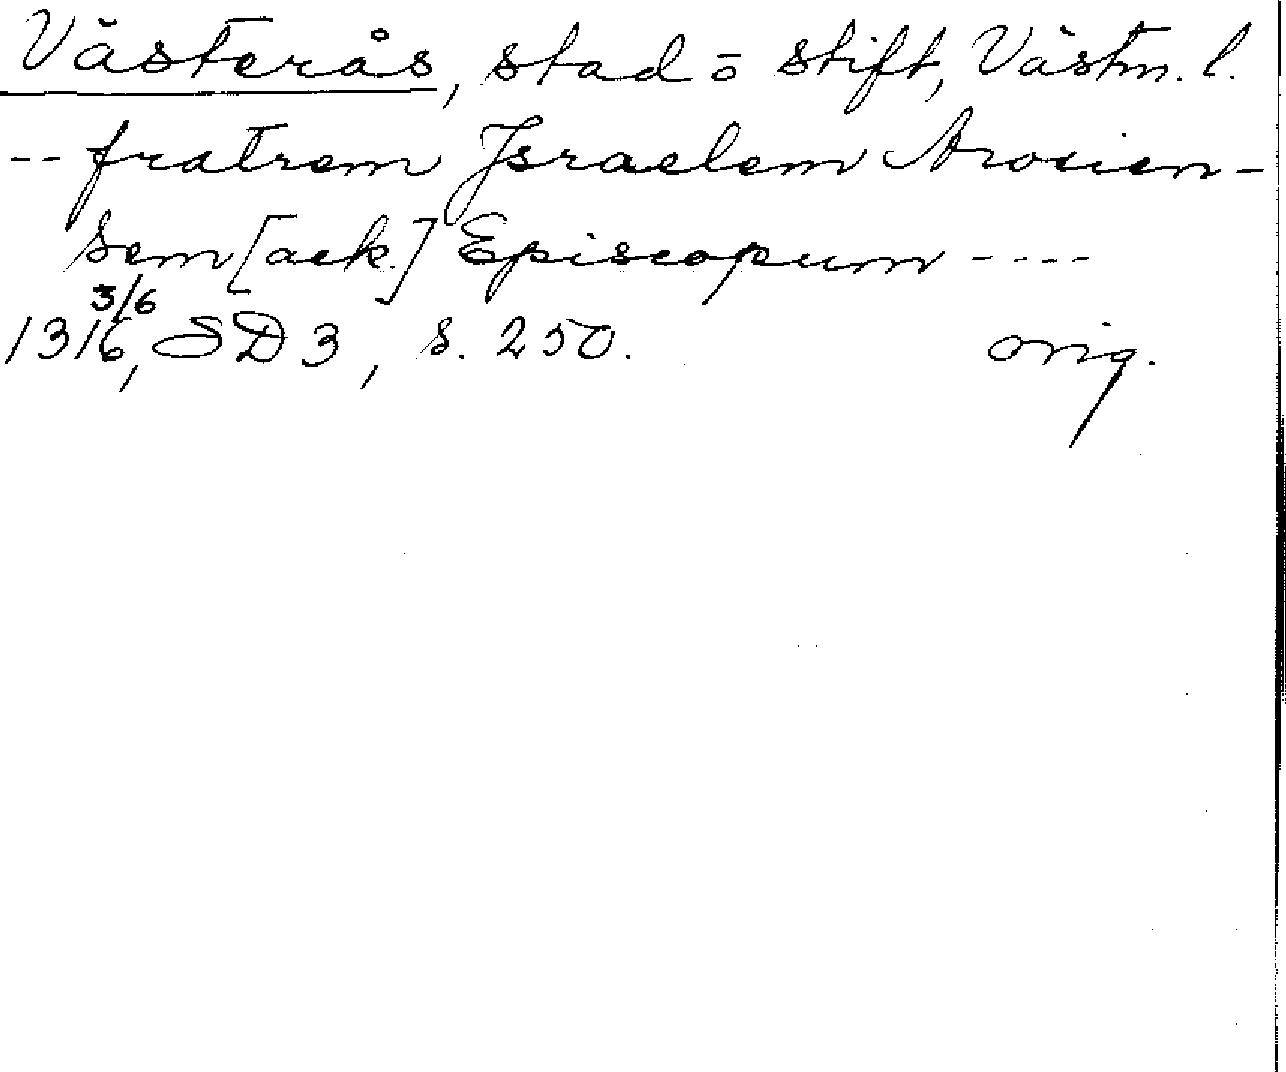 Västerås, stad o stift, Västm. l.
-- fratrem Israelem Arosien-
sem [ack.] Episcopum ----
3/6
1316, SD 3, s. 250. orig.